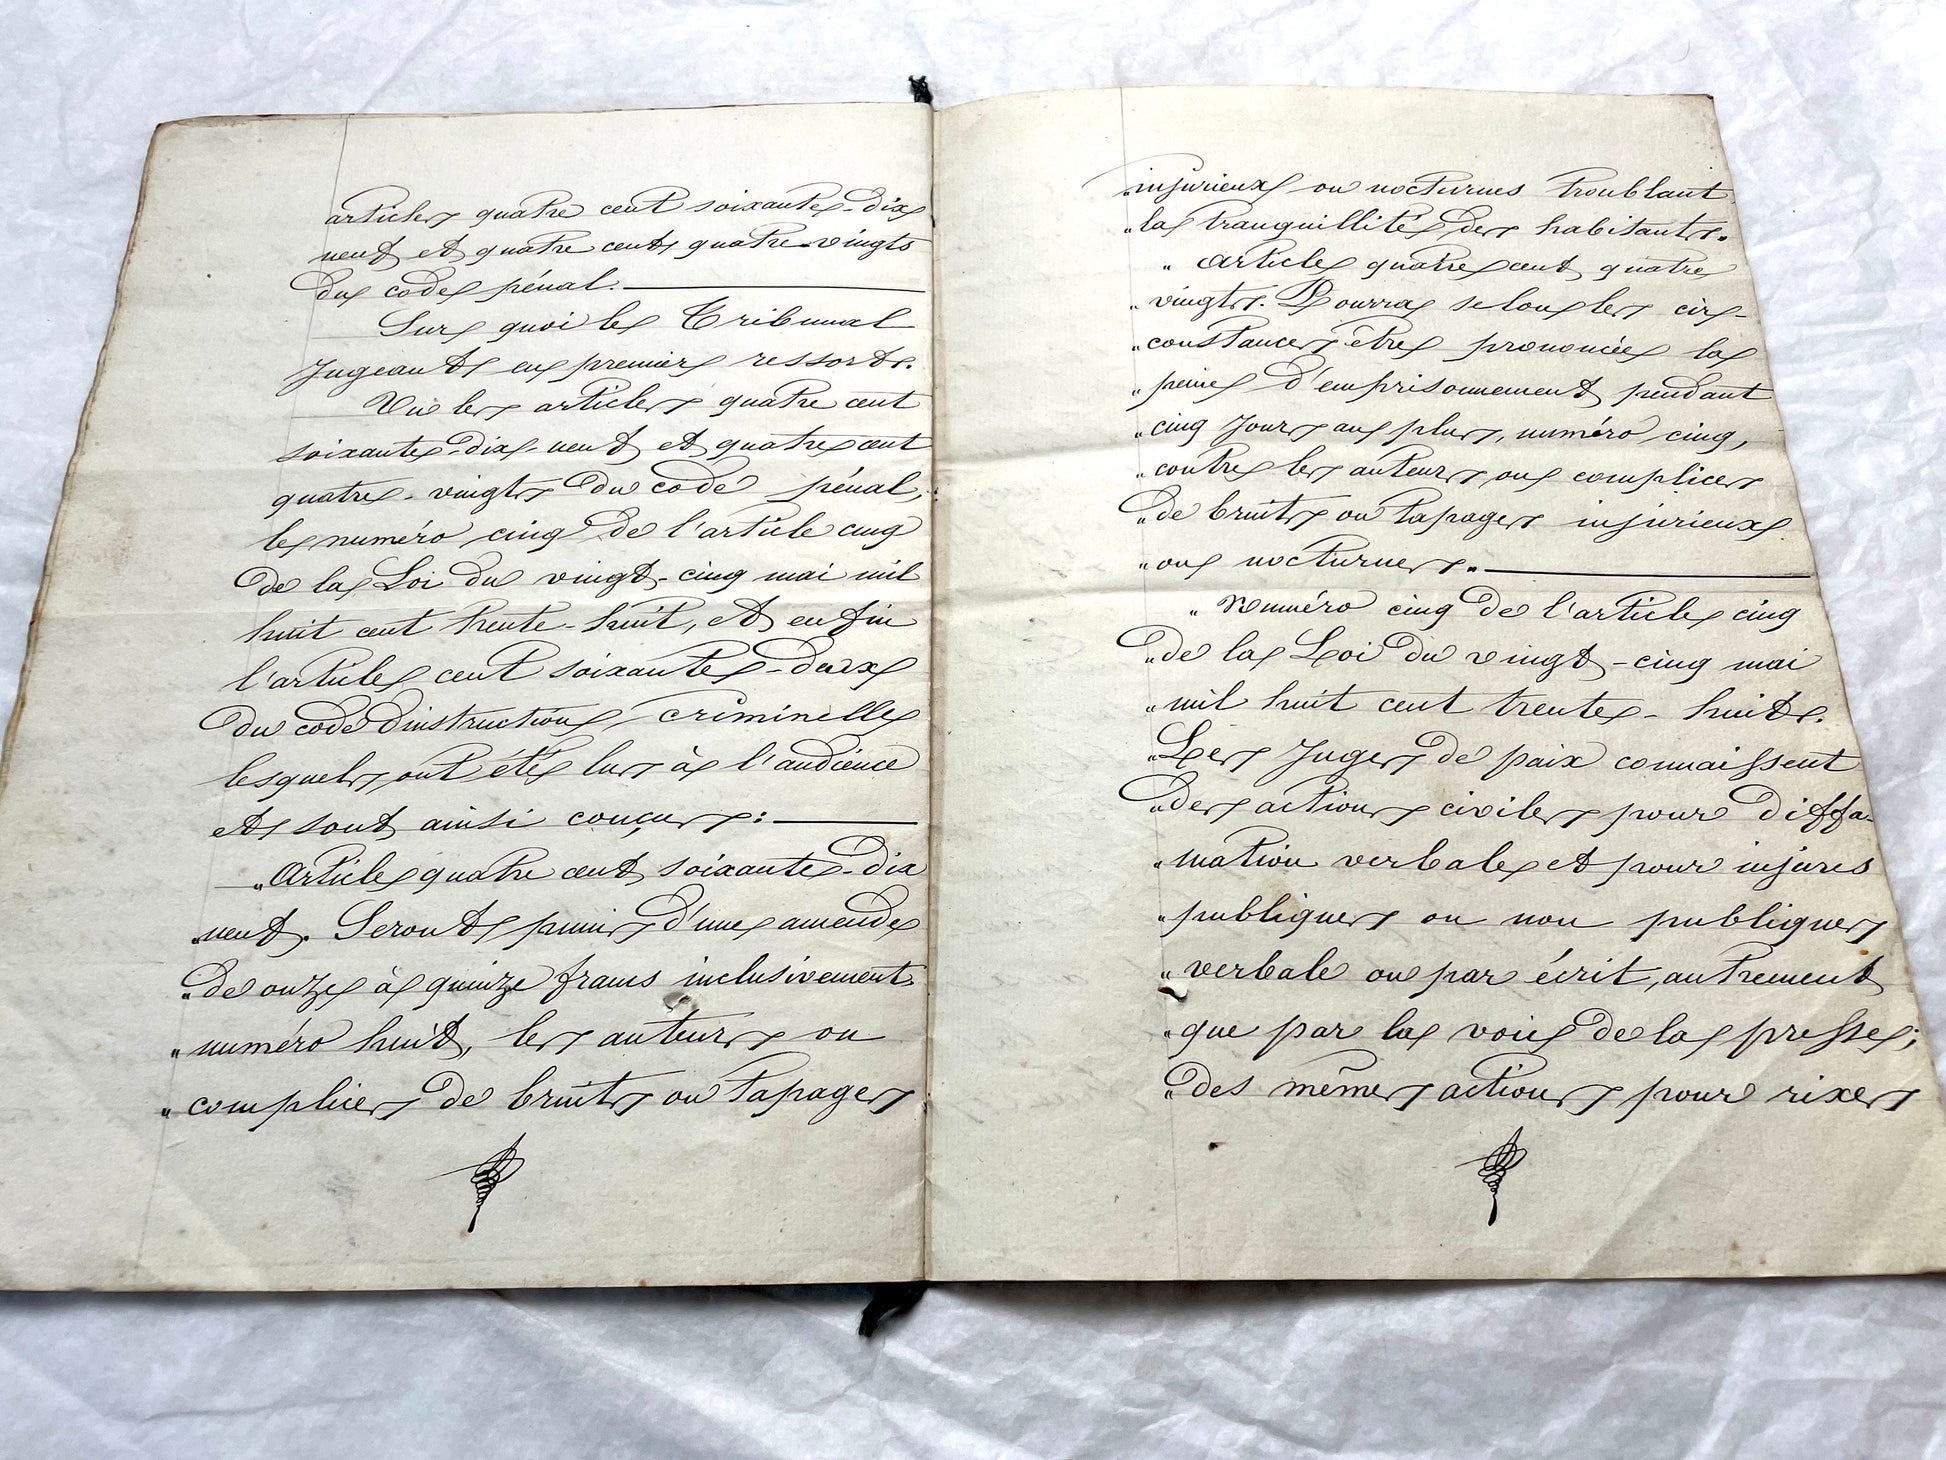 articles quatre cent soixante-dix
neuf et quatre cent quatre-vingts
du code pénal.
Sur quoi le Tribunal
Jugeant en premier ressort.
Vu les articles quatre cent
soixante-dix-neuf et quatre cent
quatre-vingts du code pénal,
le numéro cinq de l'article cinq
de la Loi du vingt-cinq mai mil
huit cent trente-huit, et enfin
l'article cent soixante-deux
du code d'instruction criminelle
lesquels ont été lus à l'audience
et sont ainsi conçus:
"Article quatre cent soixante-dix
"neuf. Seront punis d'une amende
"de onze à quinze francs inclusivement
"numéro huit, les auteurs ou
"complices de bruits ou tapages
"injurieux ou nocturnes troublant
"la tranquillité des habitants.
"Article quatre cent quatre
"vingts. Pourra selon les cir-
"constances être prononcée la
"peine d'emprisonnement pendant
"cinq jours au plus, numéro cinq,
"contre les auteurs ou complices
"de bruits ou tapages injurieux
"ou nocturnes.
"Numéro cinq de l'article cinq
"de la Loi du vingt-cinq mai
"mil huit cent trente-huit.
"Les Juges de paix connaissent
"des actions civiles pour diffa-
"mation verbale et pour injures
"publiques ou non publiques
"verbale ou par écrit, autrement
"que par la voie de la presse;
"des mêmes actions pour rixes